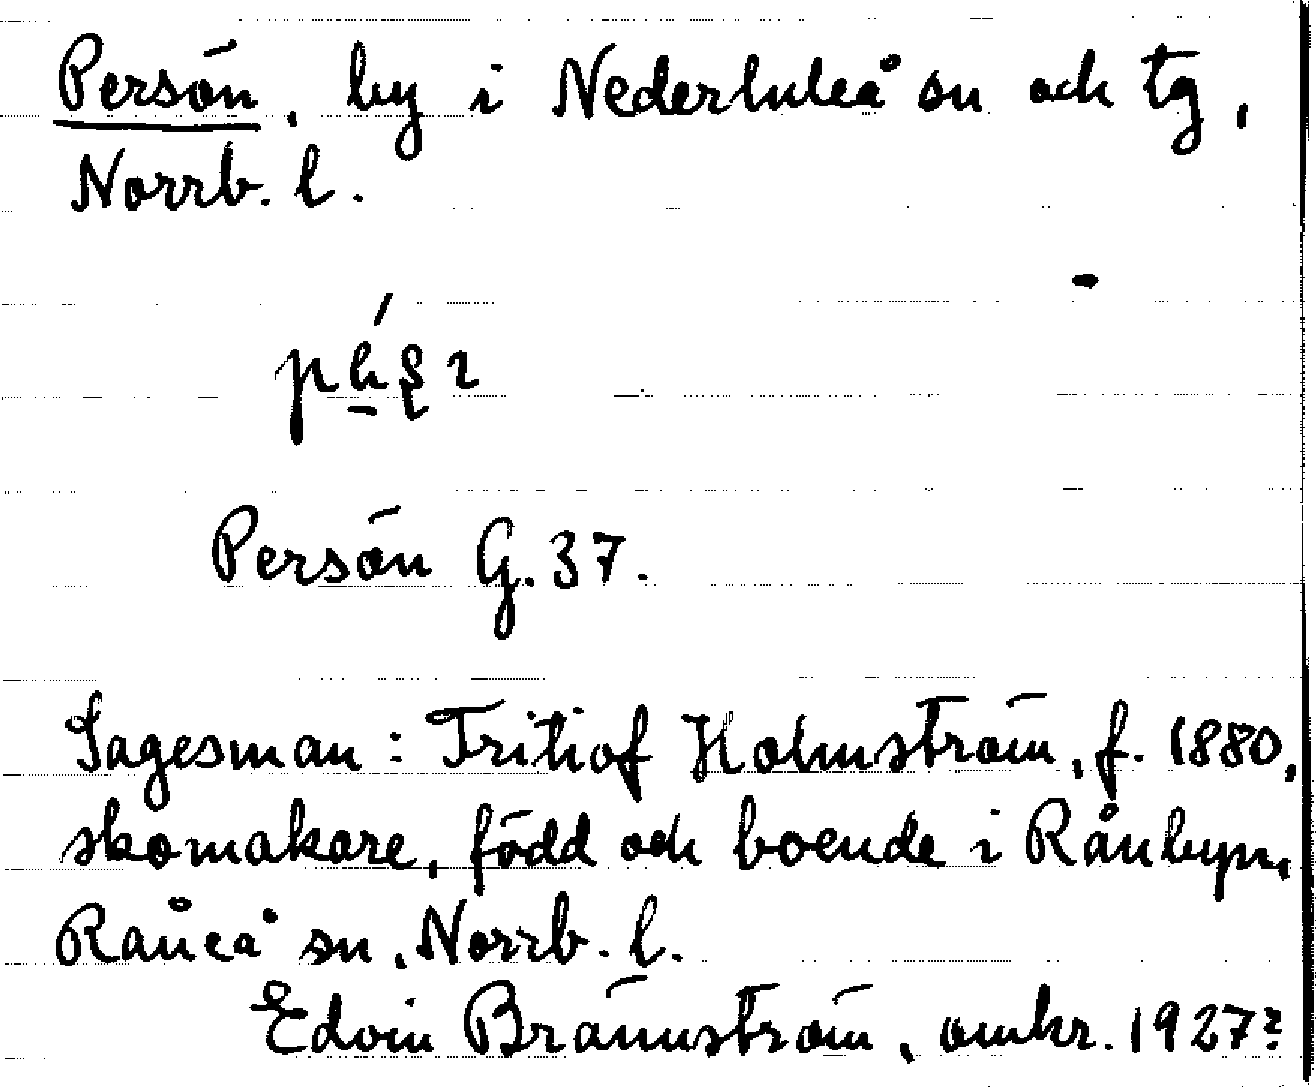 Persön, by i Nederluleå sn och tg,
Norrb. l.
Persön G. 37.
Sagesman: Fritiof Holmström, f. 1880,
skomakare, född och boende i Rånbyn,
Råneå sn, Norrb. l.
Edvin Brännström, omkr. 1927?